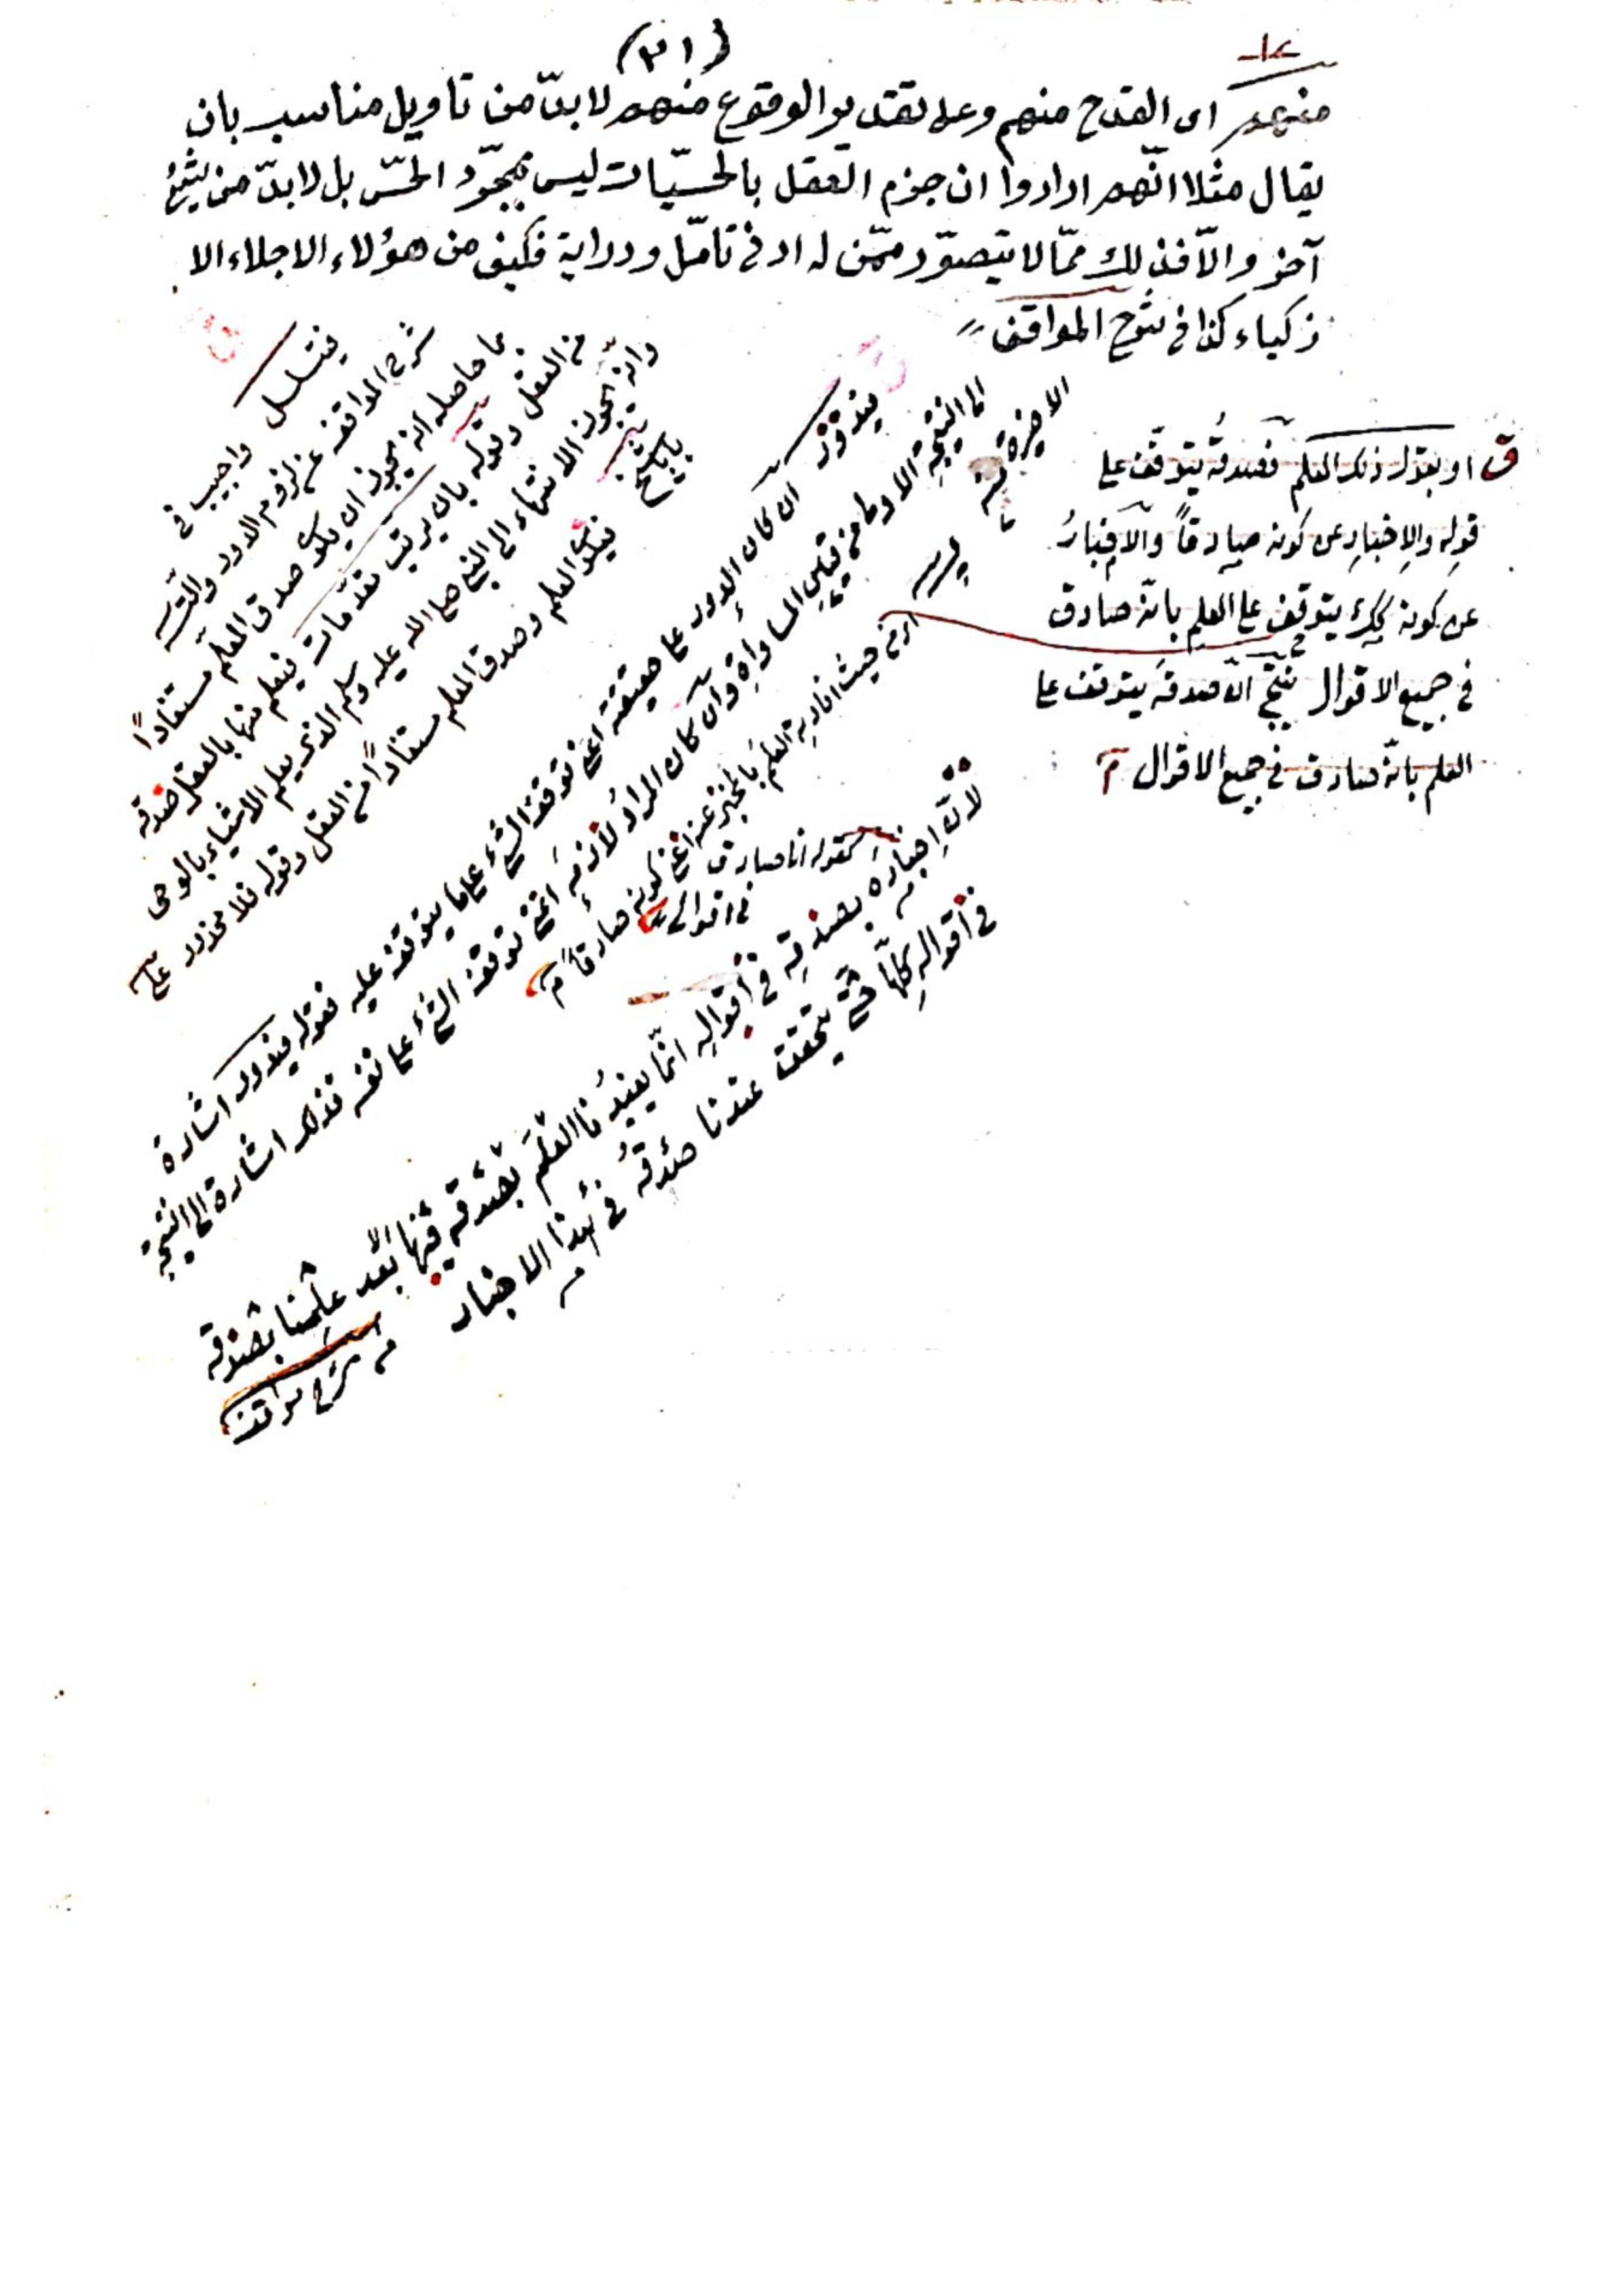 (٣١)
منهم اى القدح منهم وعلى تقدير الوقوع منهم لا بدّ من تاويل مناسب بان
يقال مثلا انّهم ارادوا ان جزم العقل بالحسّيات ليس بمجّرد الحسّ بل لا بدّ من شئ
آخر والّا فذلك ممّا لا يتصوّر ممّن له ادنى تامّل ودراية فكيف من هؤلاء الاجلاء الا
ذكياء كذا فى شرح المواقف
او بعدل ذلك العلم فصدقه يتوقّف على
قوله والإخبارِ عن كونه صادقاً والاخبارُ
عن كونه يتوقف على العلم بانّه صادق
فى جميع الاقوال ينتج انّ صدقه يتوقف على
العلم بانّه صادق فى جميع الاقوال
فيتسلسل واجيب فى
شرح المواقف عن لزوم الدور والتس
بما حاصله انه يجوز ان يكون صدق المعلّم مستفادًا
من العقل وقوله بان يرتب مقدّمات فيعلم منها بالعقل صدقه
وانّه يجوز الانتهاء الى النبى صلى الله عليه وسلم الذى يعلم الاشياء بالوحى
فيكون العلم وصدق المعلم مستفادًا من العقل وقوله فلا محذور
فيدور ان كان الدور على حقيقته اعنى توقف الشئ على ما يتوقف عليه فقوله فيدور اشارة
الى النتيجة الاولى من قبيل المساواة وان كان المرادُ لازمه اعنى توقف الشئ على نفسه فذلك اشارة الى النتيجة
الاخيرة
اى من حيث افادته العلمَ بالمخبر عنه اعنى كونه صادقاً
كقوله انا صادق
فى اقوالى
لانّ إخباره بصدقِه فى أقوالِه انّما يفيدُنا العلمَ بصدقه فيها بعد علمنا بصدقه
فى أقوالِه كلّها حتى يتحقق عندنا صدقُه فى هذا الاخبار
شرح مواقف